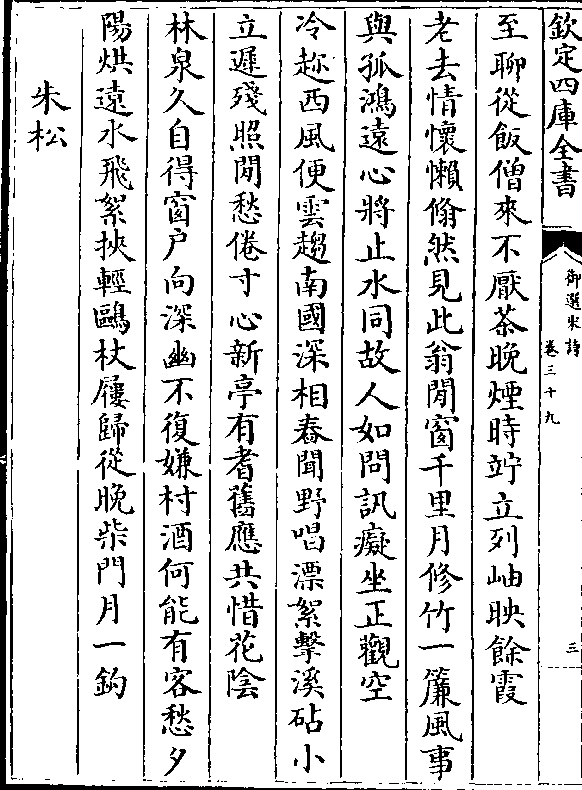 欽定四庫全書
御選宋詩
卷三十九
三
至聊從飯僧來不厭茶晚煙時竚立列岫映餘霞
老去情懷懶翛然見此翁閒窗千里月修竹一簾風事
與孤鴻遠心將止水同故人如問訊癡坐正觀空
冷趂西風便雲趨南國深相舂聞野唱漂絮擊溪砧小
立遲殘照閒愁倦寸心新亭有耆舊應共惜花陰
林泉久自得窗户向深幽不復嫌村酒何能有客愁夕
陽烘遠水飛絮挾輕鷗杖屨歸從晚柴門月一鈎
朱松